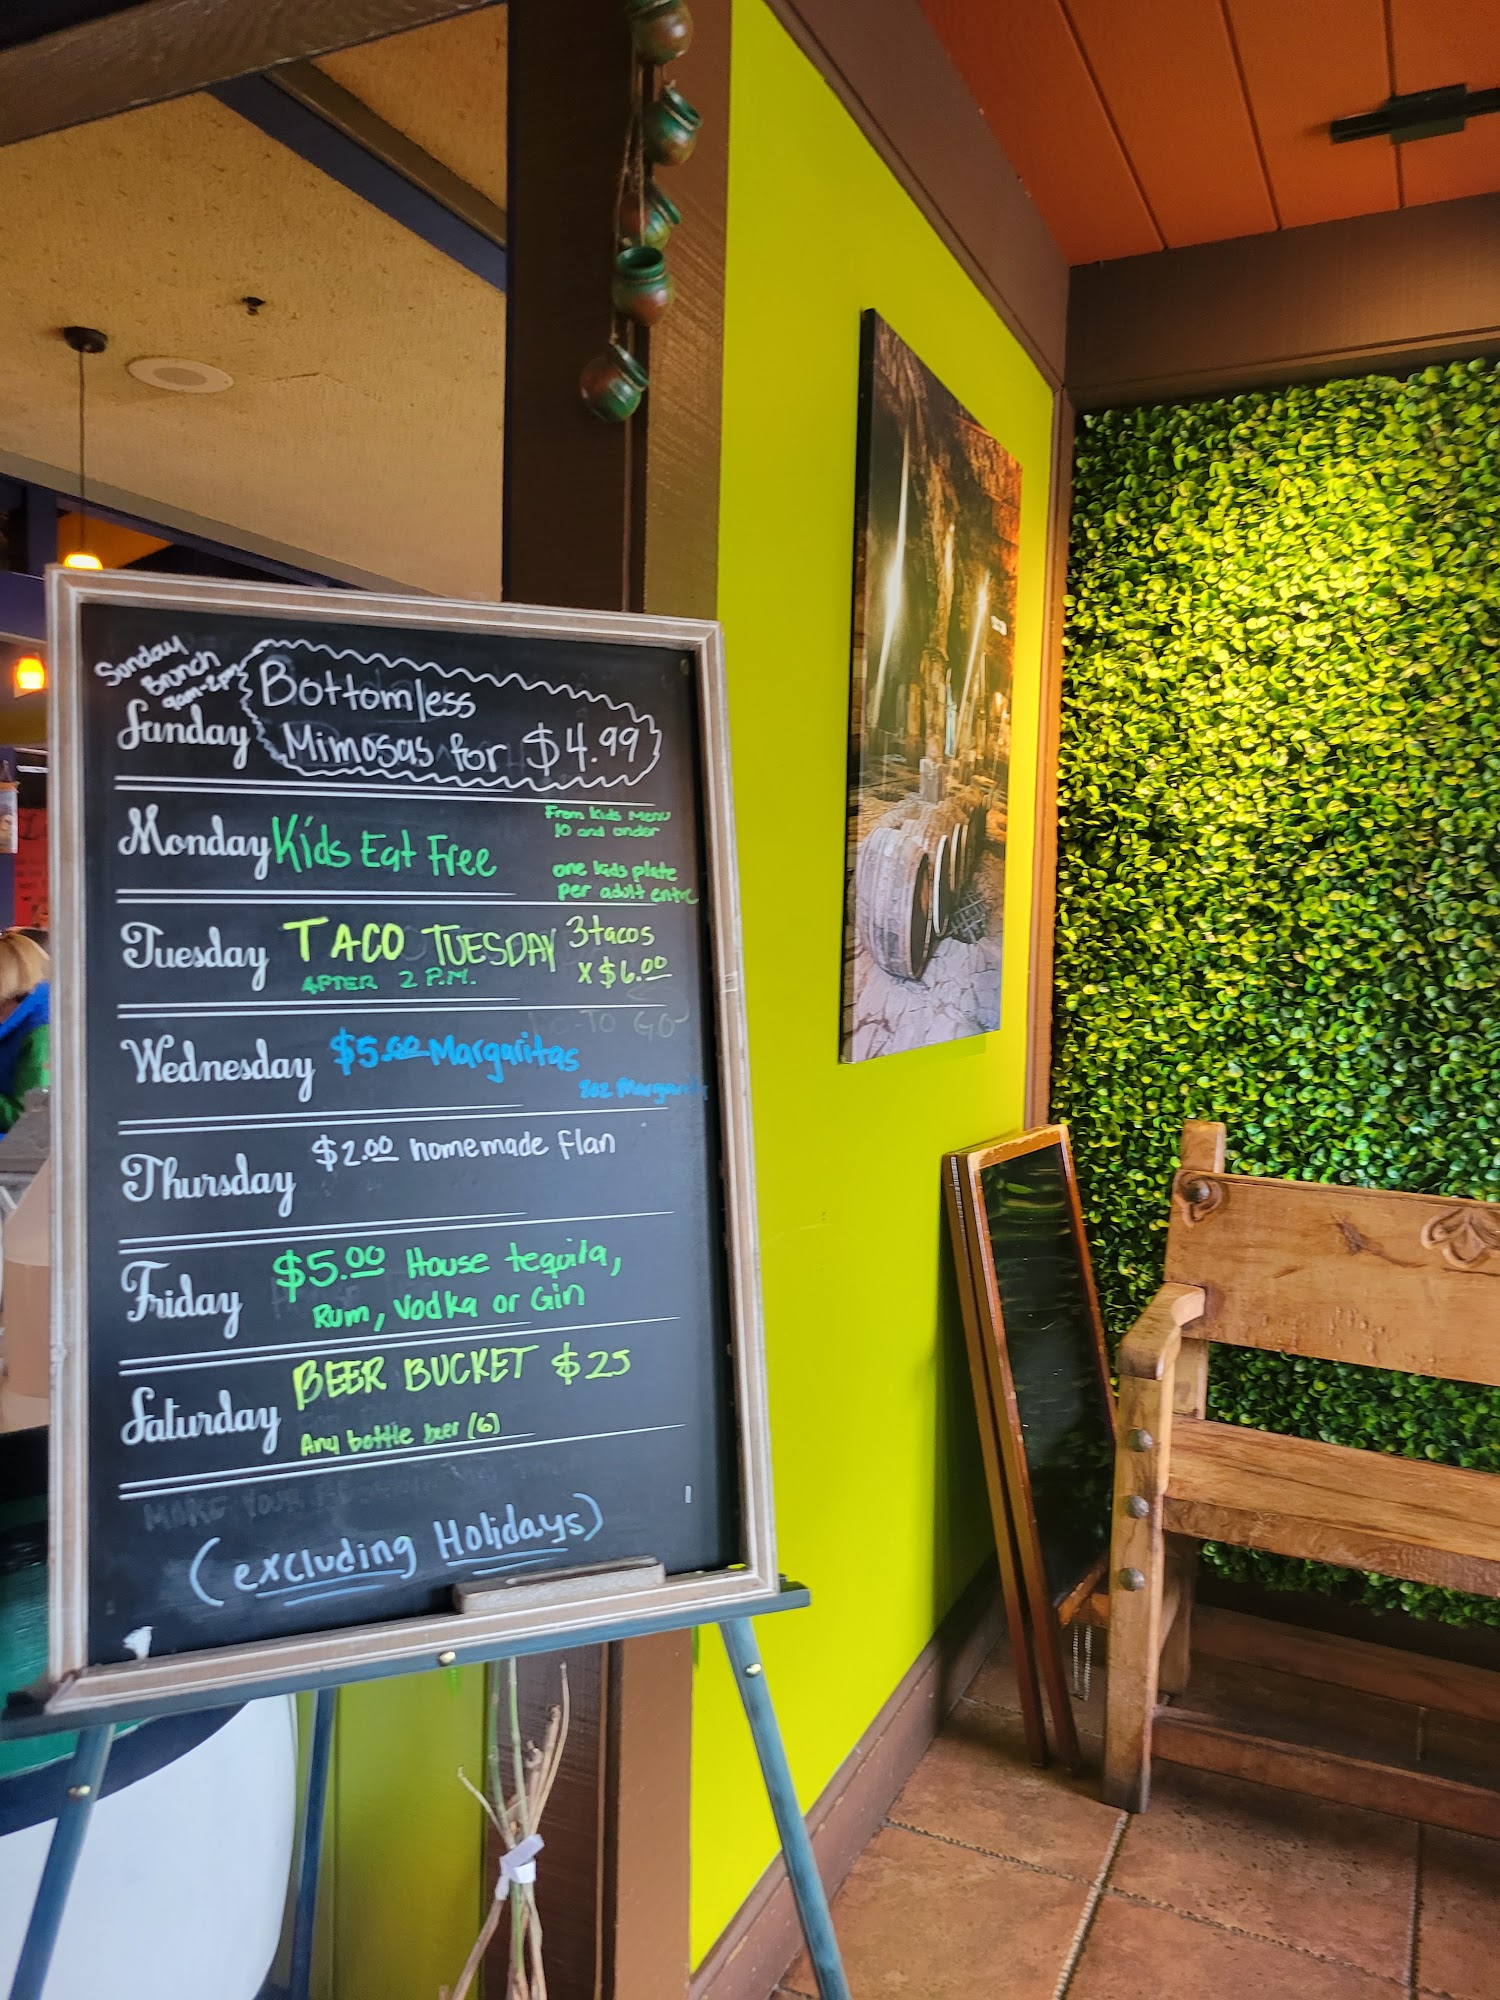 Sunday
Brunch
9am-2pm
Sunday
Bottomless
Mimosas for $4.99
Monday
Kids Eat Free
From Kids Menu
10 and under
one kids plate
per adult entre
Tuesday
TACO TUESDAY
AFTER 2 P.M.
3 tacos
x $6.00
Wednesday
$5.00 Margaritas
TO GO
Thursday
$2.00 homemade flan
Friday
$5.00 House tequila,
Rum, Vodka or Gin
Saturday
BEER BUCKET $25
Any bottle beer (6)
MAKE YOUR
(excluding Holidays)